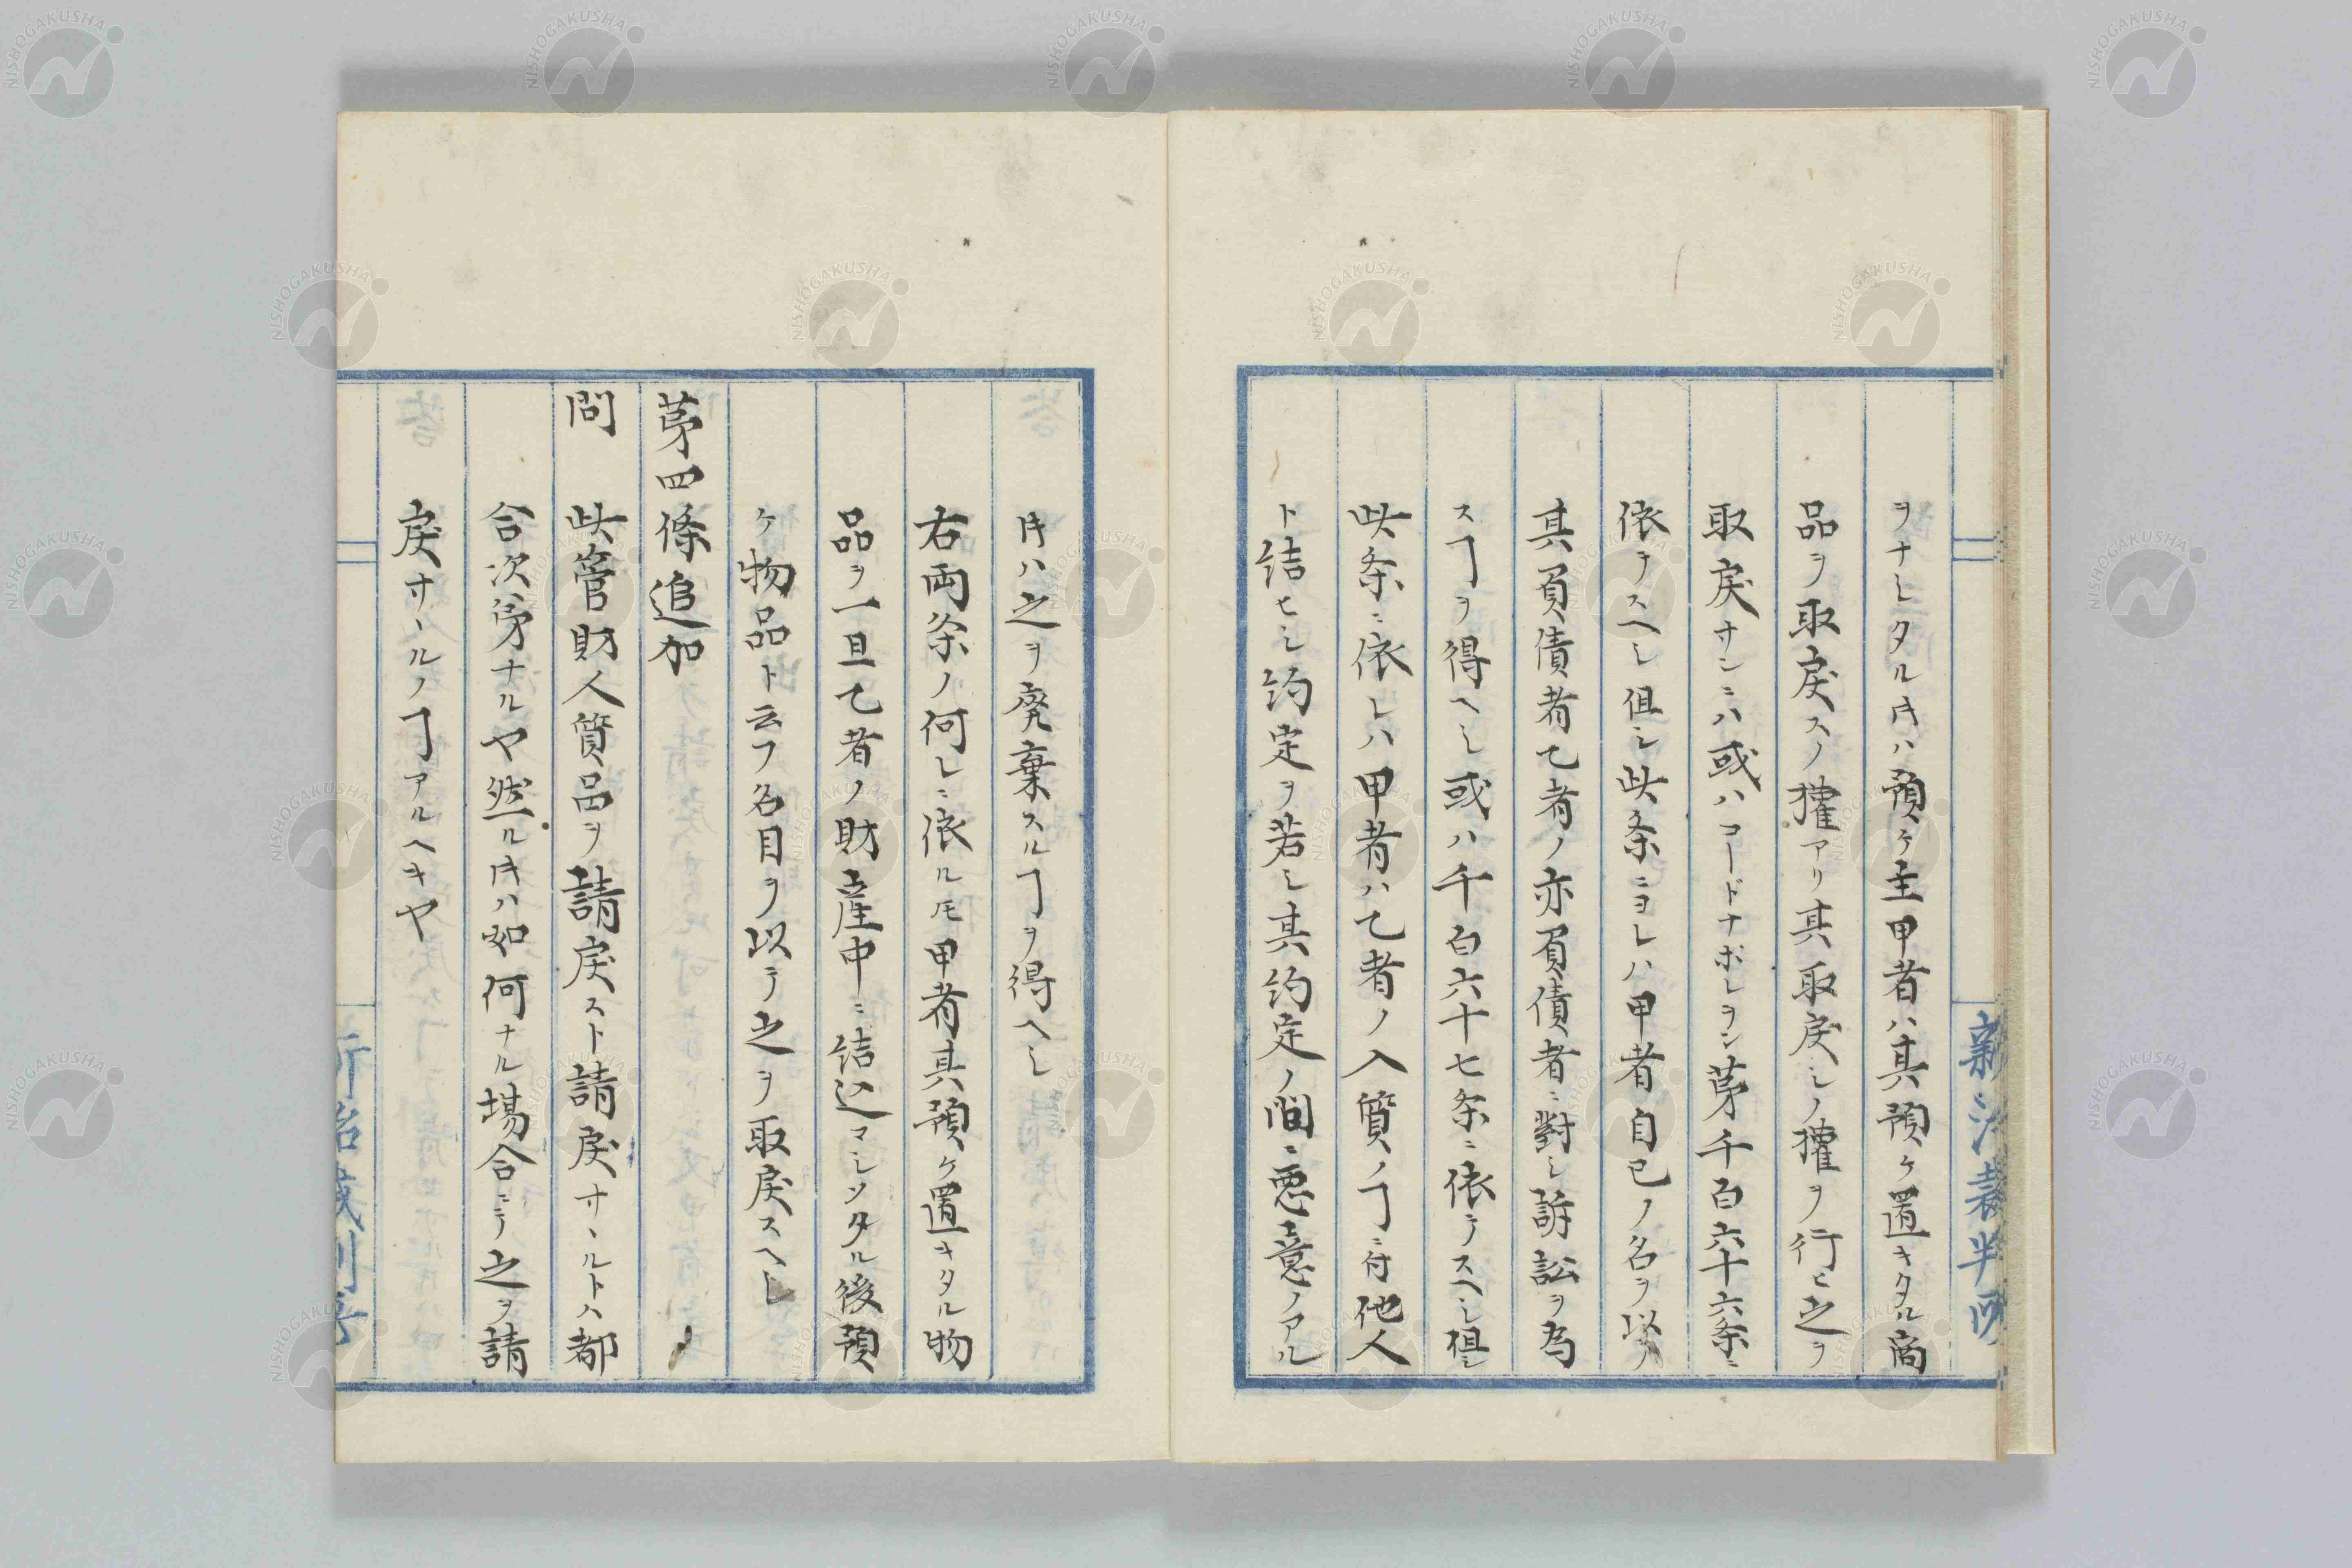 ヲナシタル𪜈ハ預ケ主甲者ハ其預ケ置キタル商
品ヲ取戻スノ權アリ其取戻シノ權ヲ行ヒ之ヲ
取戻サンニハ或ハコードナポレヲン苐千百六十六条ニ
依テスヘシ但シ此条ニヨレハ甲者自己ノ名ヲ以テ
其負債者乙者ノ亦負債者ニ對シ訴訟ヲ為
スヿヲ得ヘシ或ハ千百六十七条ニ依テスヘシ但シ
此条ニ依レハ甲者ハ乙者ノ入質ノヿニ付他人
ト結ヒシ約定ヲ若シ其約定ノ間ニ悪意ノアル
𪜈ハ之ヲ廃棄スルヿヲ得ヘシ
右両条ノ何レニ依ル𪜈甲者其預ケ置キタル物
品ヲ一旦乙者ノ財産中ニ結込マシメタル後預
ケ物品ト云フ名目ヲ以テ之ヲ取戻スヘシ
苐四條追加
問 此管財人質品ヲ請戻スト請戻サヽルトハ都
合次苐ナルヤ然ル𪜈ハ如何ナル場合ニテ之ヲ請
戻サヽルノヿアルヘキヤ
新治裁判所
NISHOGAKUSHA